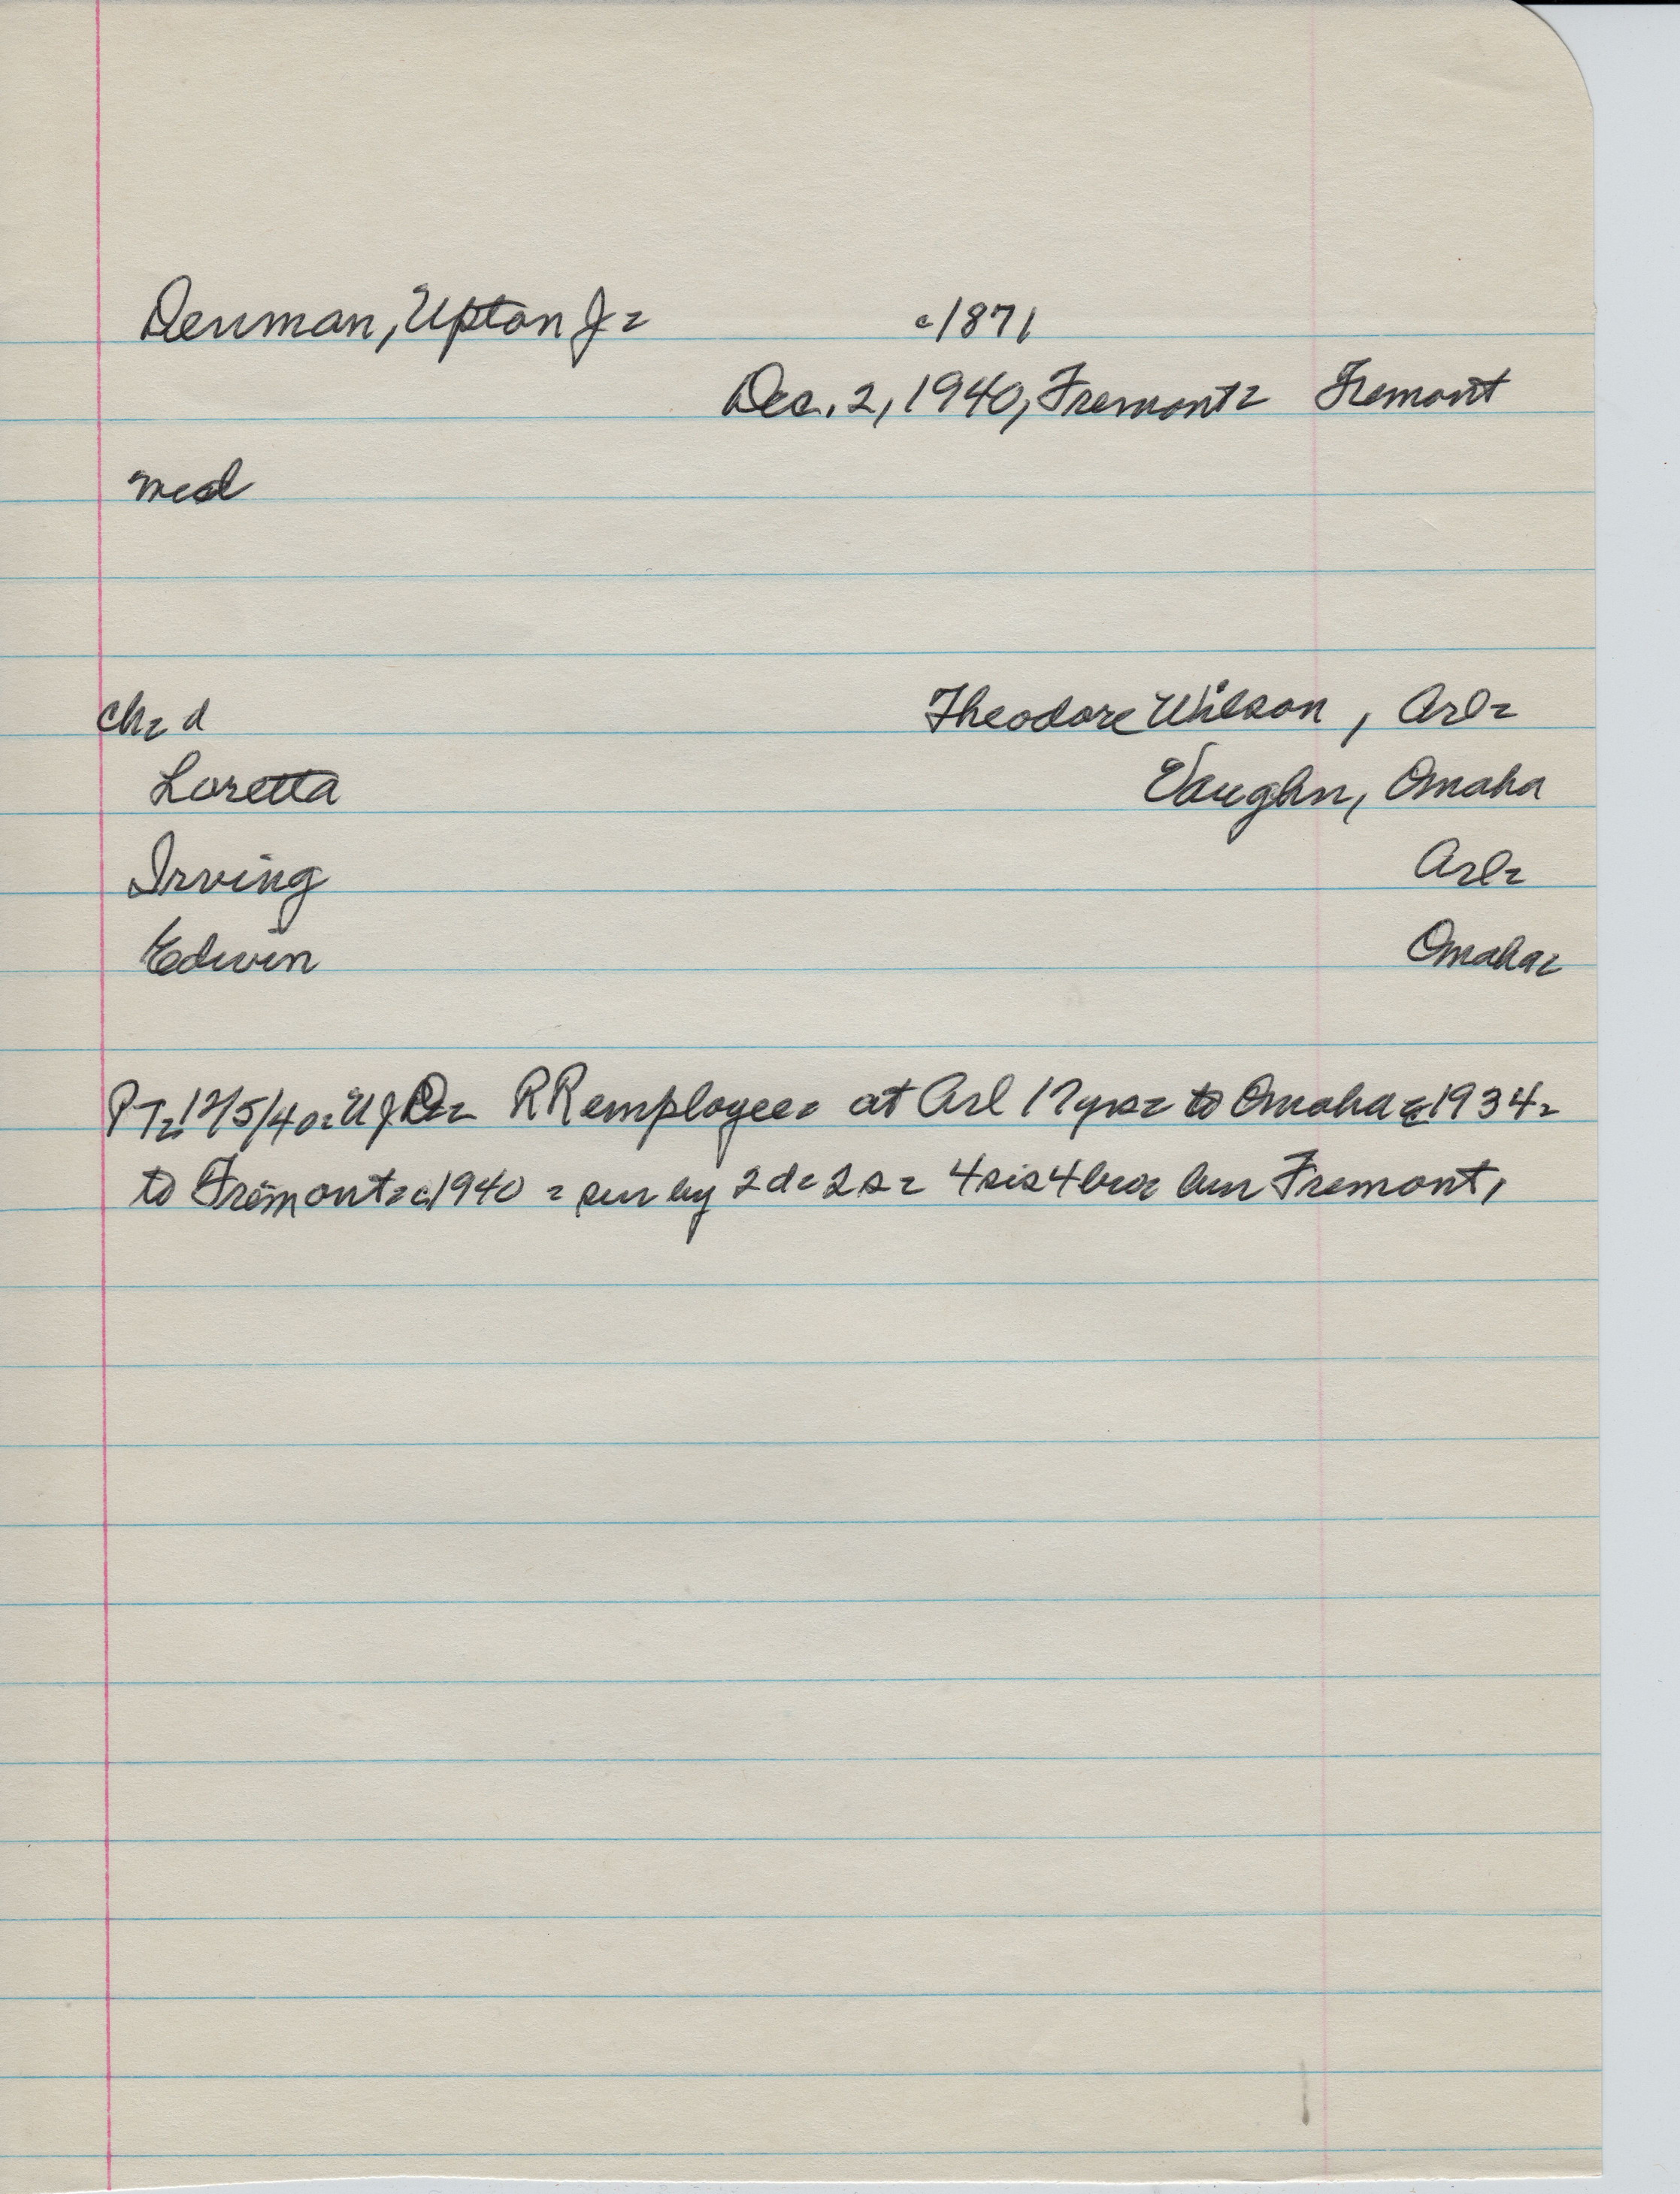 Denman, Upton J= c1871
Dec. 2, 1940, Fremont= Fremont
med
ch= d Theodore Wilson, Arl=
Loretta Vaughn, Omaha
Irving Arl=
Edwin Omaha=
PT=12/5/40=UJD= RR employee= at Arl 17yrs= to Omaha c1934=
to Fremont=c1940 = sur by 2d= 2s= 4sis4bro= bur Fremont,